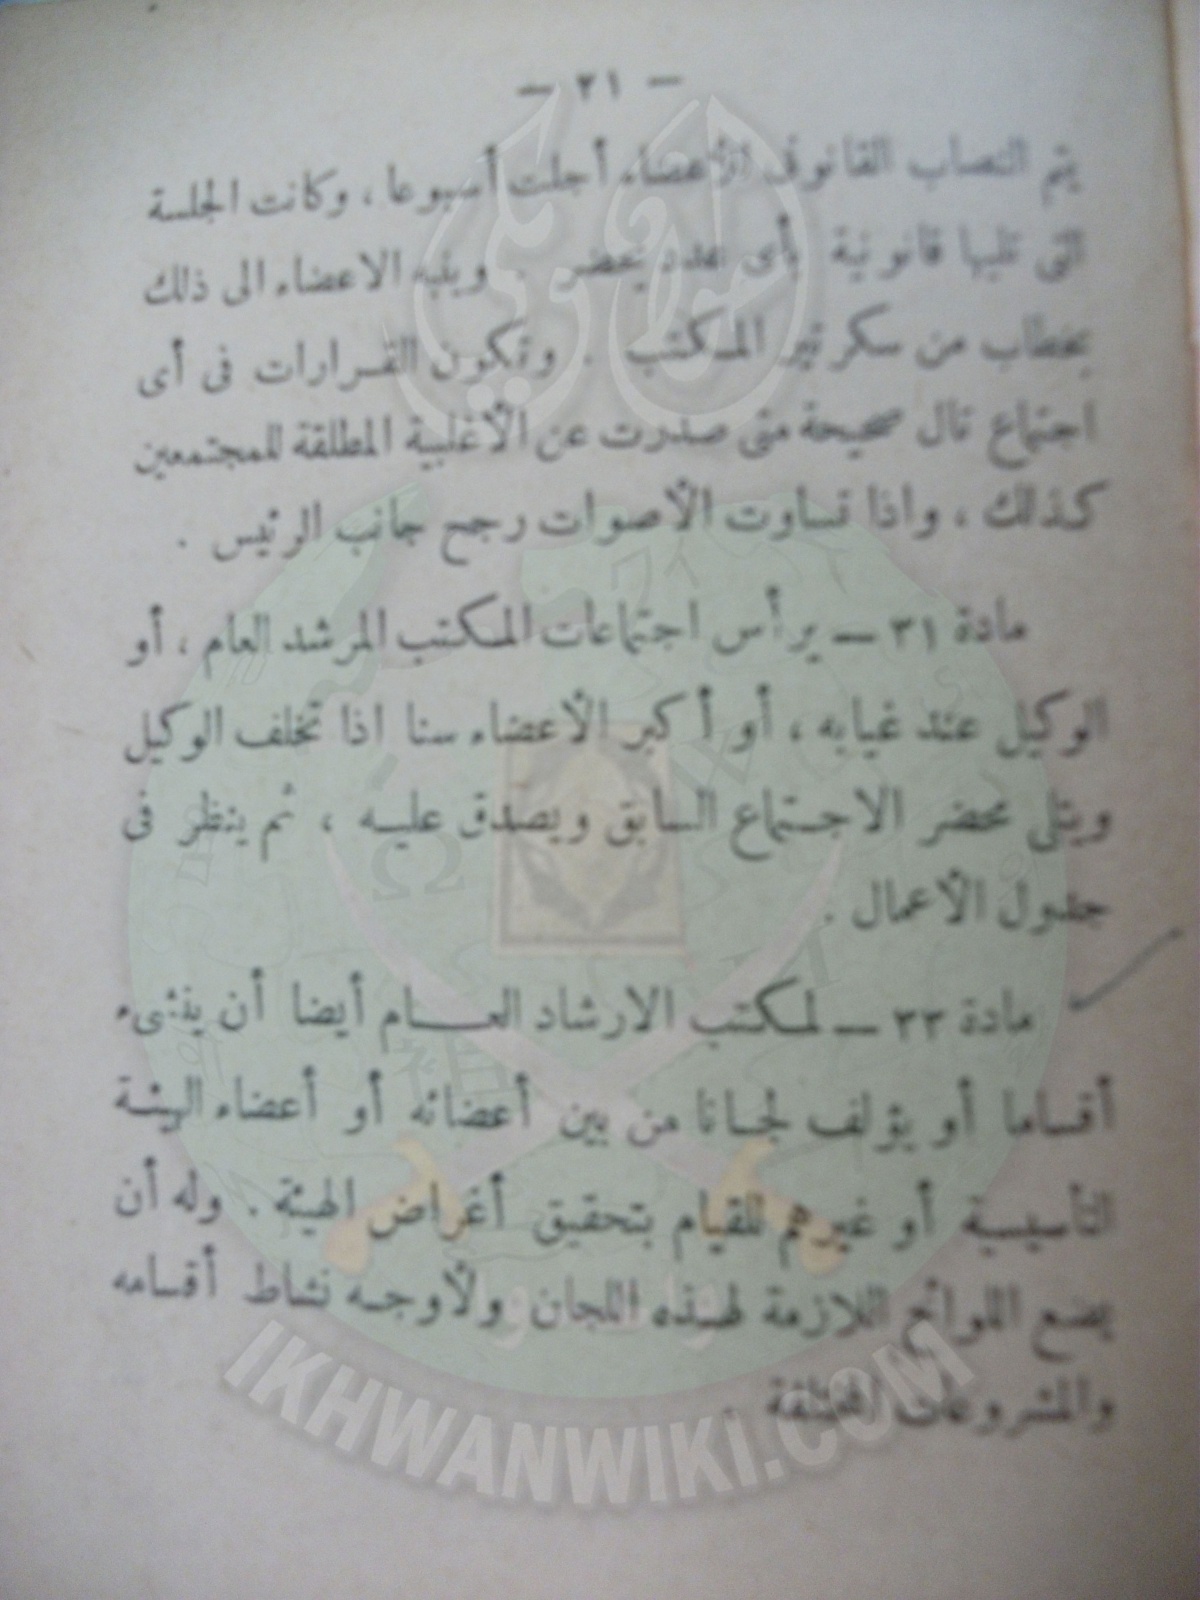 — ٢١ —
يتم النصاب القانونى الأعضاء أجلت أسبوعا ، وكانت الجلسة
التى تليها قانونية بأى عدد يحضر . وينبه الاعضاء الى ذلك
بخطاب من سكرتير المكتب . وتكون القرارات فى أى
اجتماع تال صحيحة متى صدرت عن الأغلبية المطلقة للمجتمعين
كذلك ، واذا تساوت الأصوات رجح جانب الرئيس .
مادة ٣١ — يرأس اجتماعات المكتب المرشد العام ، أو
الوكيل عند غيابه ، أو أكبر الأعضاء سنا اذا تخلف الوكيل
ويتلى محضر الاجتماع السابق ويصدق عليه ، ثم ينظر فى
جدول الأعمال .
مادة ٣٣ — لمكتب الارشاد العام أيضا أن ينشىء
أقساما أو يؤلف لجانا من بين أعضائه أو أعضاء الهيئة
التأسيسية أو غيرهم للقيام بتحقيق أغراض الهيئة . وله أن
يضع اللوائح اللازمة لهذه اللجان ولأوجه نشاط أقسامه
والمشروعات المختلفة .
إخوان ويكي
IKHWANWIKI.COM